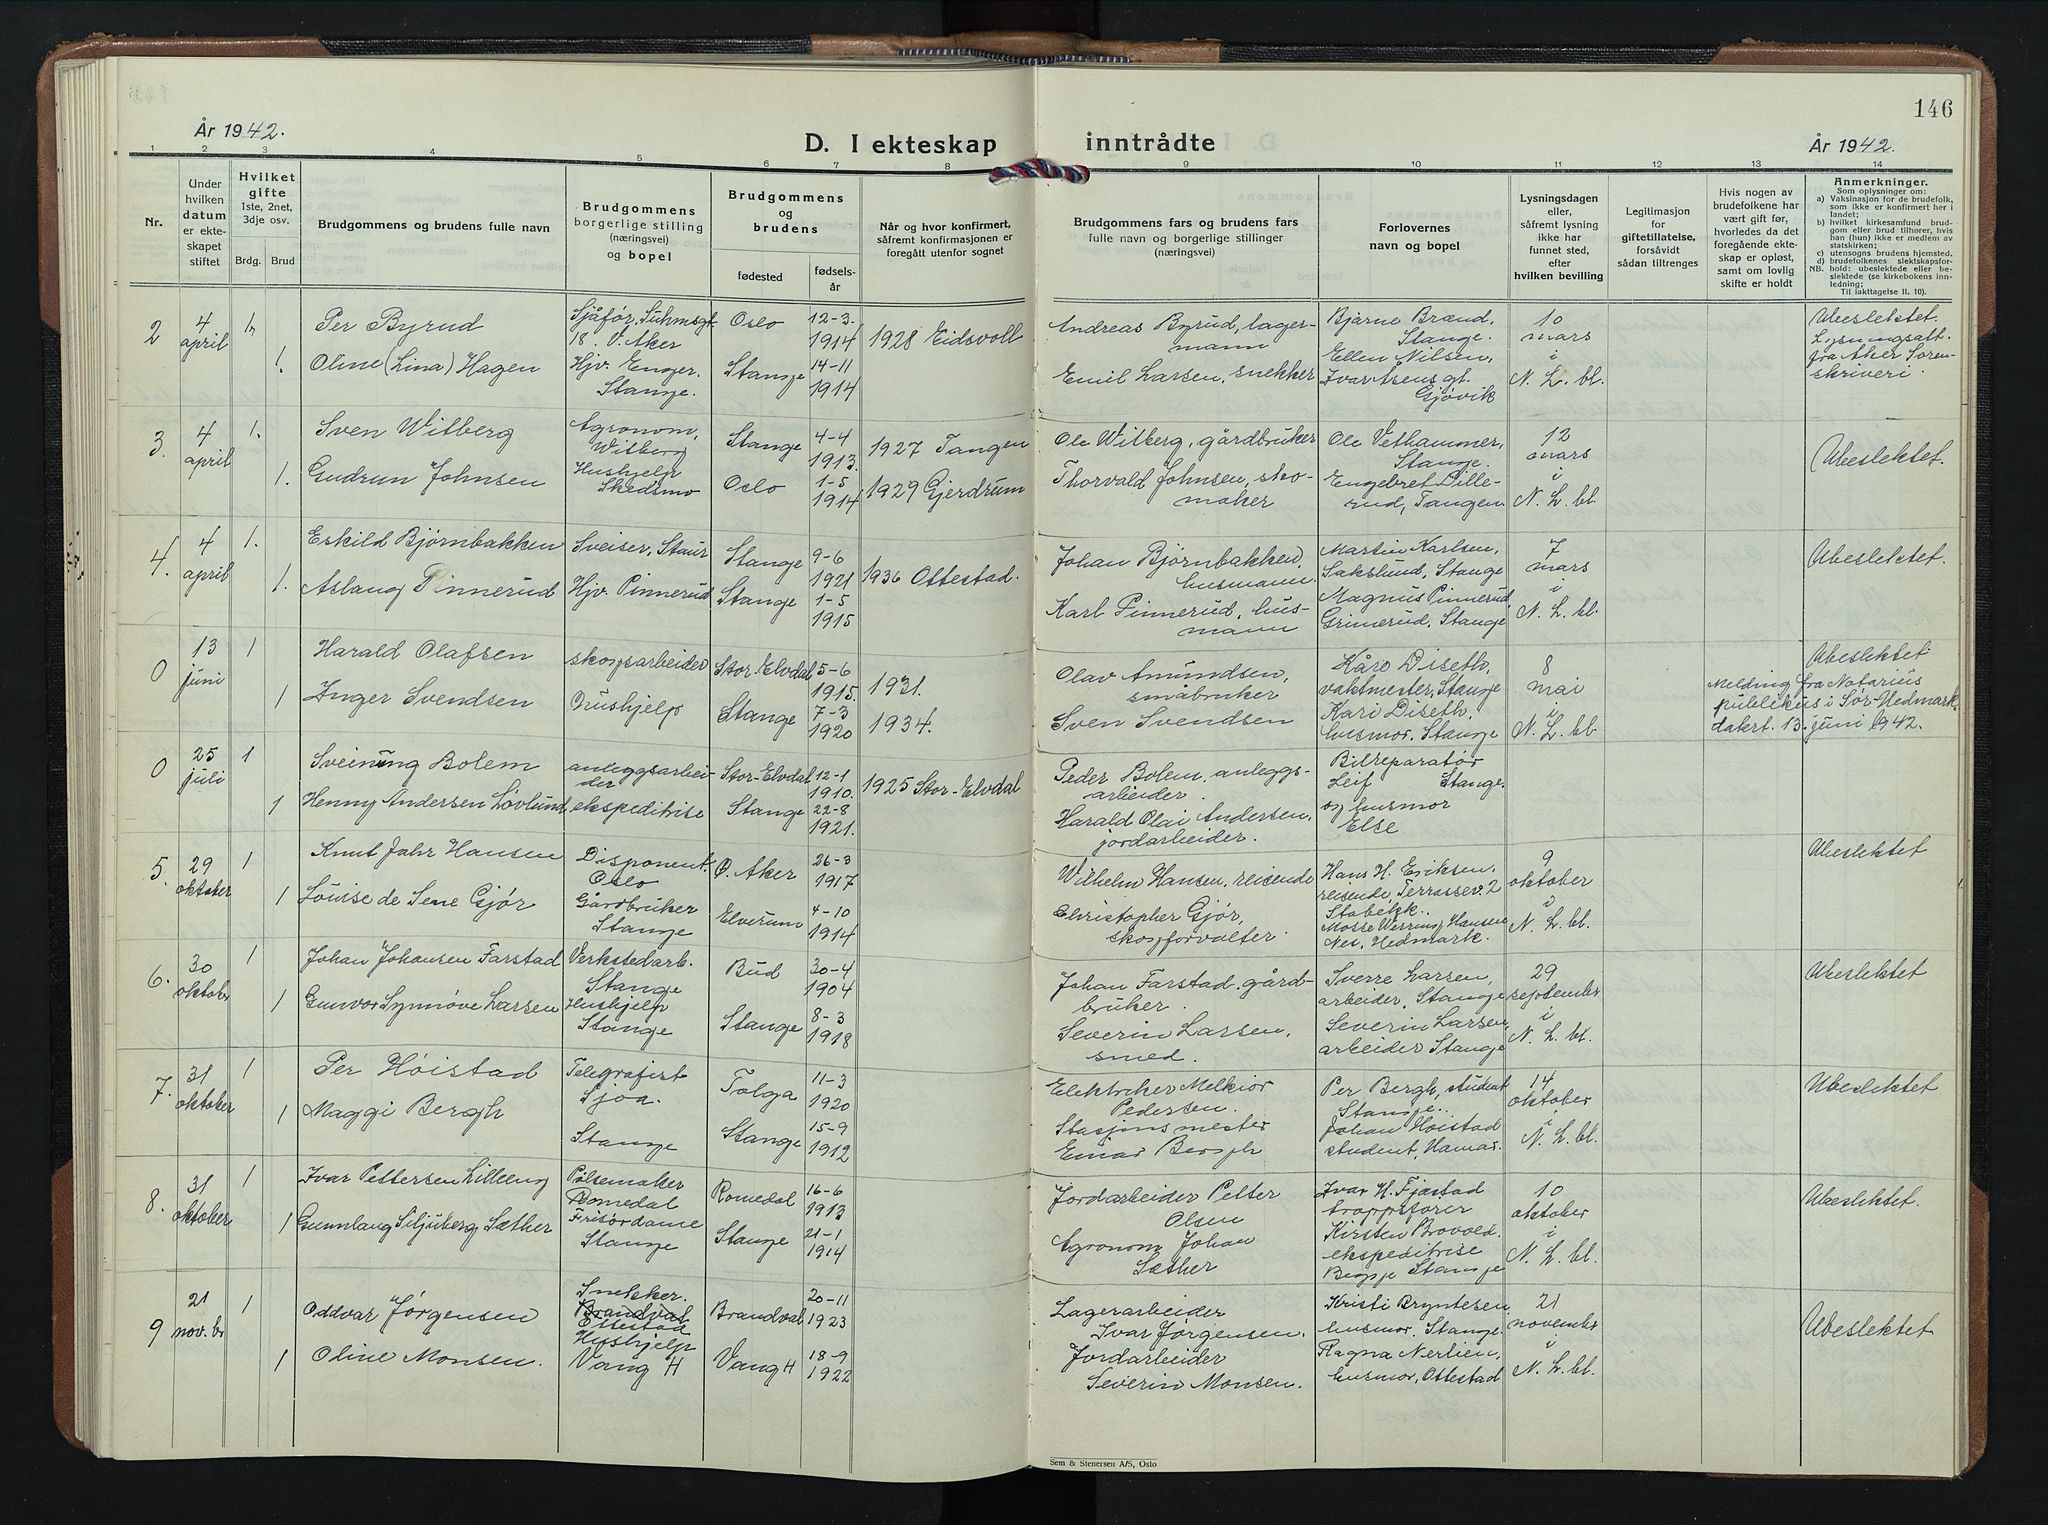 146
År 1942.
D. I ekteskap inntrådte
År 1942.
1 2 3 4 5 6 7 8 9 10 11 12 13 14
Nr.
Under hvilken datum er ekteskapet stiftet
Hvilket gifte 1ste, 2net, 3dje osv.
Brdg. Brud
Brudgommens og brudens fulle navn
Brudgommens borgerlige stilling (næringsvei) og bopel
Brudgommens og brudens
fødested
fødselsår
Når og hvor konfirmert, såfremt konfirmasjonen er foregått utenfor sognet
Brudgommens fars og brudens fars fulle navn og borgerlige stillinger (næringsvei)
Forlovernes navn og bopel
Lysningsdagen eller, såfremt lysning ikke har funnet sted, efter hvilken bevilling
Legitimasjon for giftetillatelse, forsåvidt sådan tiltrenges
Hvis nogen av brudefolkene har vært gift før, hvorledes da det foregående ekteskap er opløst, samt om lovlig skifte er holdt
Anmerkninger.
Som oplysninger om:
a) Vaksinasjon for de brudefolk, som ikke er konfirmert her i landet;
b) hvilket kirkesamfund brudgom eller brud tilhører, hvis han (hun) ikke er medlem av statskirken;
c) utensogns brudens hjemsted.
d) brudefolkenes slektskapsforhold: ubeslektede eller beslektede (se kirkebokens innledning;
NB. Til iakttagelse II. 10).
2 4 april 1. Per Byrud Sjåfør, Suhmsgt. 18. V. Aker Oslo 12-3. 1914 1928 Eidsvoll
1. Oline (Lina) Hagen Hjv. Enger. Stange. Stange 14-11 1914
Andreas Byrud, lagermann
Emil Larsen, snekker
Bjarne Brænd, Stange.
Ellen Nilsen, Ivar Aasens gt. Gjøvik
10 mars i N. L. bl.
Ubeslektet. Lysningsatt. fra Aker Sorenskriveri.
3. 4 april 1. Sven Witberg Agronom, Witberg Stange 4-4 1913. 1927 Tangen
1. Gudrun Johnsen Hushjelp Skedsmo Oslo 1-5 1914 1929 Gjerdrum
Ole Witberg, gårdbruker
Thorvald Johnsen, skomaker
Ole Vethammer, Stange.
Engebret Dillerud, Tangen.
12 mars i N. L. bl.
Ubeslektet.
4. 4 april 1. Eskild Bjørnbakken Sveiser, Staur Stange 9-6 1921 1936 Ottestad.
1. Aslaug Pinnerud Hjv. Pinnerud Stange 1-5 1915
Johan Bjørnbakken, husmann.
Karl Pinnerud, husmann
Martin Karlsen, Sakslund, Stange
Magnus Pinnerud, Grimerud, Stange
7 mars i N. L. bl.
Ubeslektet.
0 13 juni 1 Harald Olafsen skogsarbeider Stor-Elvdal 5-6 1915. 1931.
1 Inger Svendsen Hushjelp Stange 7-3 1920 1934.
Olav Amundsen, småbruker
Sven Svendsen
Kåre Diseth, vaktmester, Stange
Kari Diseth, husmor. Stange
8 mai i N. L. bl.
Ubeslektet
Melding fra Notarius publikus i Sør-Hedmark, datert. 13. juni 1942.
0 25 juli 1 Sveinung Bolem anleggsarbeider Stor-Elvdal 12-1 1910. 1925 Stor-Elvdal
1 Henny Andersen Løvlund ekspeditrise Stange 22-8 1921.
Peder Bolem, anleggsarbeider.
Harald Olai Andersen, jordarbeider.
Bilreparatør Leif Stange. og husmor Else
5. 29 oktober 1 Knut Jahr Hansen Disponent. Oslo Ø. Aker 26-3 1917
1 Louise de Seue Gjør Gårdbruker Stange Elverum 4-10 1914
Wilhelm Hansen, reisende
Christopher Gjør, skogforvalter.
Hans H. Eriksen, reisende, Terrassev. 2 Stabekk.
Mosse Werring Hansen Nes, Hedmark.
9 oktober i N. L. bl.
Ubeslektet
6. 30 oktober 1 Johan Johansen Farstad Verkstedarb. Stange Bud 30-4 1904
1 Gunvor Synnøve Larsen Hushjelp Stange Stange 8-3 1918
Johan Farstad. gårdbruker.
Severin Larsen, smed.
Sverre Larsen, arbeider, Stange
Severin Larsen, arbeider Stange
29 september i N. L. bl.
Ubeslektet
7. 31 oktober 1 Per Høistad Telegrafist Sjoa. Tolga 11-3 1920
1 Maggi Bergh Stange Stange 15-9 1912
Elektriker Melkior Pedersen.
Stasjonsmester Einar Bergh
Per Bergh, student Stange.
Johan Høistad student, Hamar.
14 oktober i N. L. bl.
Ubeslektet
8. 31 oktober 1 Ivar Pettersen Lilleeng Pølsemaker Romedal Romedal 16-6 1913
1 Gunnlaug Siljuberg Sæther Frisørdame Stange Stange 21-1 1914
Jordarbeider Petter Olsen
Agronom Johan Sæther
Ivar H. Fjæstad troppsfører
Kirsten Brovold. ekspeditrise Begge Stange
10 oktober i N. L. bl.
Ubeslektet.
9 21 nov.br 1 Oddvar Jørgensen Snekker. Brandval Ottestad Brandval 20-11 1923
1 Oline Monsen. Hushjelp Vang H Vang H 18-9 1922
Lagerarbeider Ivar Jørgensen.
Jordarbeider Severin Monsen.
Kristi Bryntesen, husmor. Stange.
Ragna Nerlien, husmor, Ottestad
21 november i N. L. bl.
Ubeslektet
Sem & Stenersen A/S, Oslo